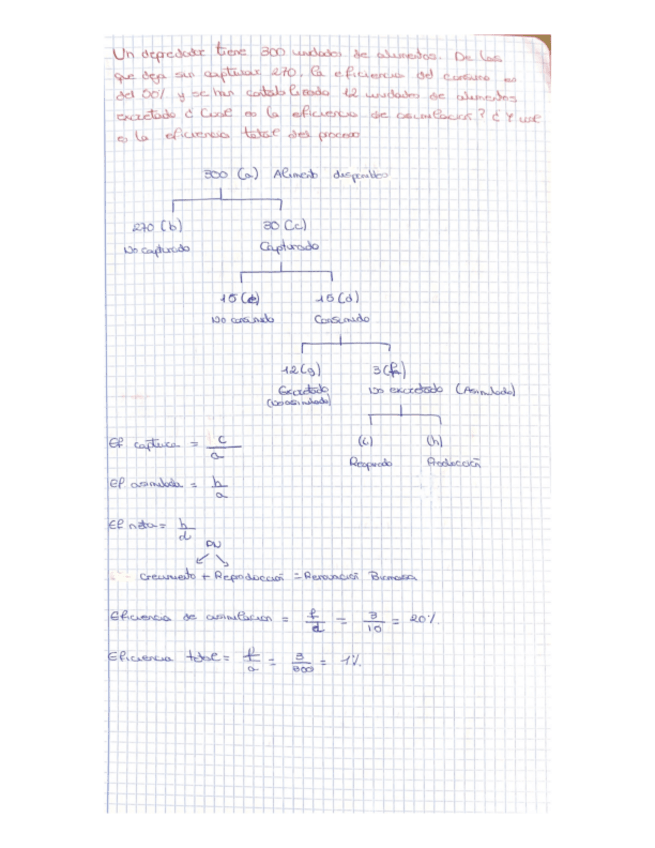 Un depredador tiene 300 unidades de alimentos. De las
que deja sin capturar 270. La eficiencia del consumo es
del 50% y se han contabilizado 12 unidades de alimentos
excretado ¿ Cual es la eficiencia de asimilación? ¿ Y cual
es la eficiencia total del proceso
300 (a) Alimento disponible
270 (b) 30 (c)
No capturado Capturado
15 (e) 15 (d)
No consumido Consumido
12 (g) 3 (f)
Excretado No excretado (Asimilado)
(No asimilado)
Ef captura = c/a
(i) (h)
Respirado Producción
Ef asimilada = h/a
Ef neta = h/d
PN
Crecimiento + Reproducción = Biomasa
Eficiencia de asimilacion = f/d = 3/10 = 20%
Eficiencia total = f/a = 3/300 = 1%